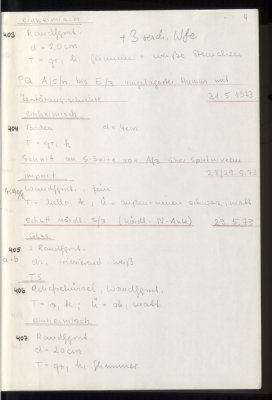 4
einheimisch
403 Randfgmt. + 3 versch. Wfe
d = 20 cm
T = gr, h, Glimmer + weiße Steinchen
PQ A/5/n bis E/3 umgelagerter Humus mit
Zerstörungsschichte 31.5.1973
einheimisch
404 Boden d = 4cm
T = gr, h
Schnitt an S-Seite von A/2 über Spielniveau
Import 28/29.5.73
Wandfgmt., fein
T = hello, h; Ü = außen + innen schwarz, matt
Schutt nördl. 2/3 (nördl. N-Ante) 29.5.73
Glas
405 2 Randfgmt.
a+b ds, irisierend weiß
TS
406 Reliefschüssel, Wandfgmt.
T = o, h; Ü = ob, matt
einheimisch
407 Randfgmt.
d = 20cm
T = gr, h, Glimmer